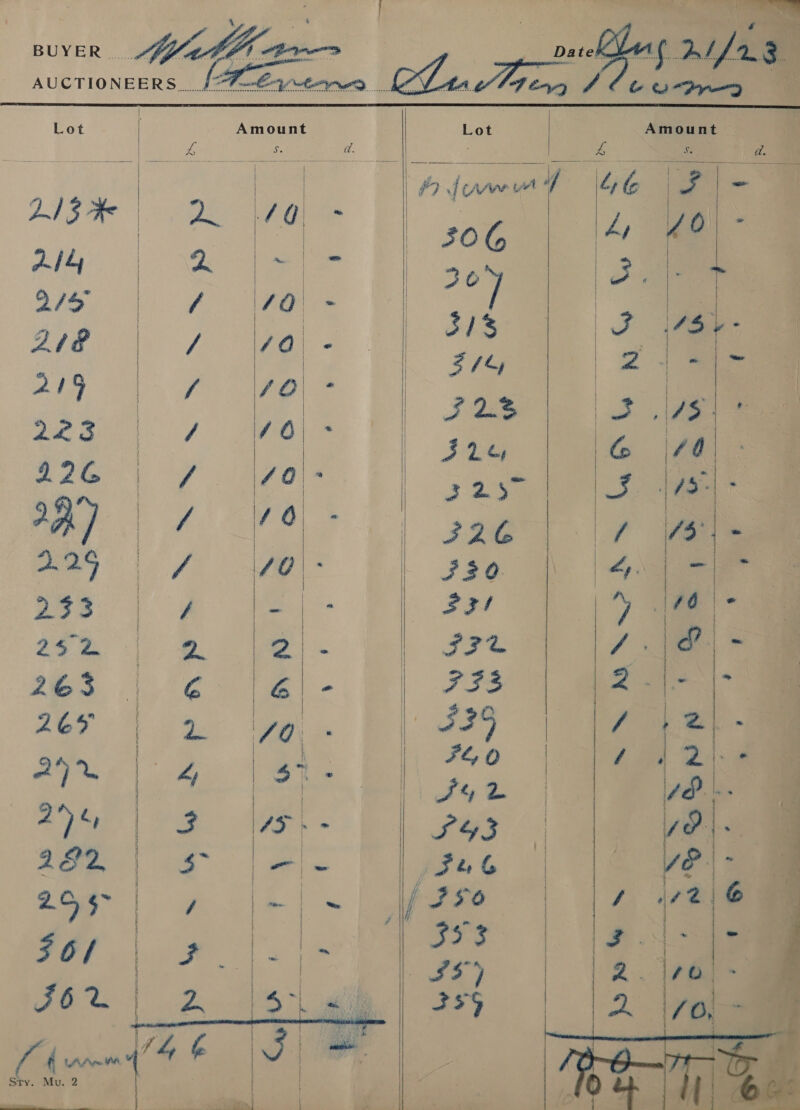 BUYER
Date Aug 21/23
AUCTIONEERS Stevens Auction Rooms
Lot Amount
£ s. d.
213* 2 10 -
214 2 - -
215 1 10 -
218 1 10 -
219 1 10 -
223 1 10 -
226 1 10 -
227 1 10 -
229 1 10 -
233 1 - -
252 2 2 -
263 6 6 -
265 2 10 -
272 4 5 -
274 3 15 -
282 5 - -
295 1 - -
301 3 - -
302 2 5 -
46 3 -
Sty. Mu. 2
Lot Amount
£ s. d.
46 3 -
306 4 10 -
307 3 - -
313 3 15 -
314 2 - -
323 3 15 -
324 6 10 -
325 3 15 -
326 1 15 -
330 4 - -
331 7 10 -
332 1 8 -
333 2 - -
339 1 2 -
340 1 2 -
342 18 -
343 18 -
346 18 -
350 1 12 6
353 3 - -
357 2 10 -
359 2 10 -
104 11 6